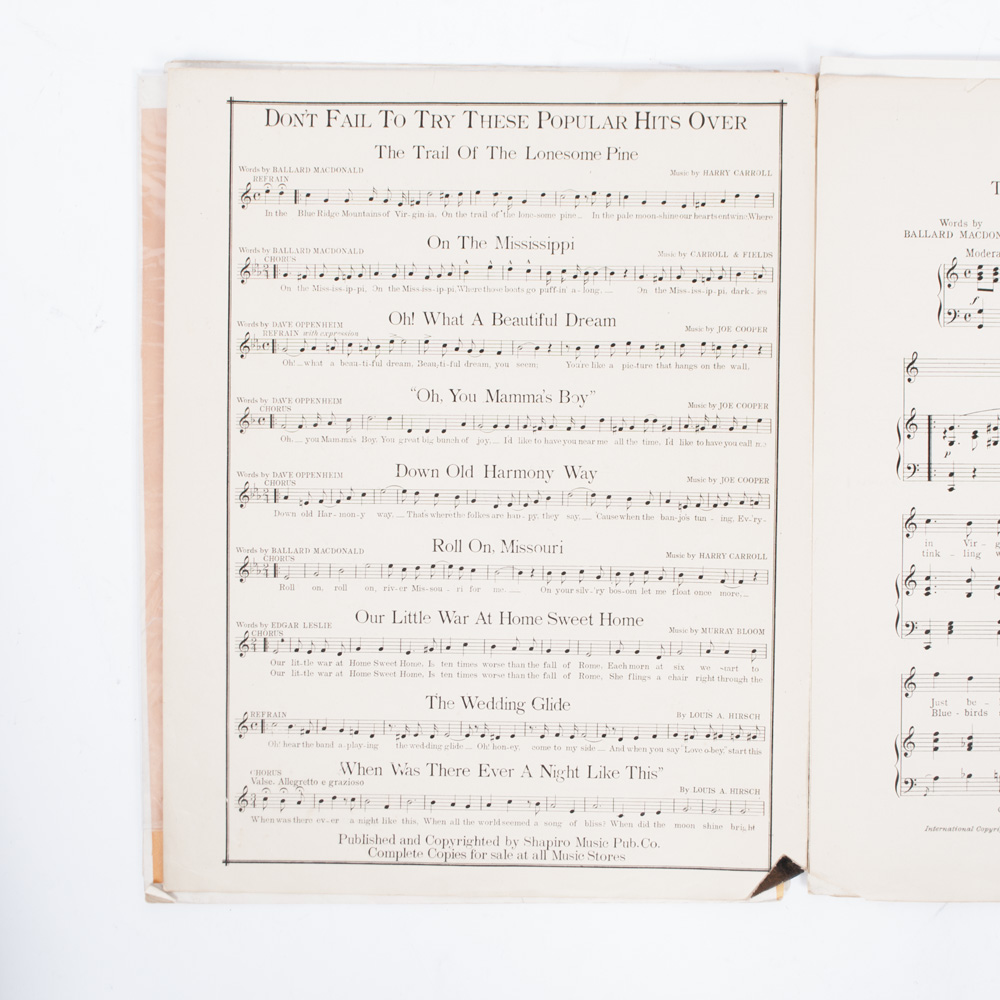 DON'T FAIL TO TRY THESE POPULAR HITS OVER
The Trail Of The Lonesome Pine
Words by BALLARD MACDONALD
Music by HARRY CARROLL
REFRAIN
In the Blue Ridge Mountains of Vir-gin-ia, On the trail of the lone-some pine— In the pale moon-shine our hearts entwine, Where
On The Mississippi
Words by BALLARD MACDONALD
Music by CARROLL & FIELDS
CHORUS
On the Miss-iss-ip-pi, On the Miss-iss-ip-pi, Where those boats go puff-in' a-long,— On the Miss-iss-ip-pi, dark-ies
Oh! What A Beautiful Dream
Words by DAVE OPPENHEIM
Music by JOE COOPER
REFRAIN with expression
Oh!— what a beau-ti-ful dream, Beau-ti-ful dream, you seem; You're like a pic-ture that hangs on the wall,
"Oh, You Mamma's Boy"
Words by DAVE OPPENHEIM
Music by JOE COOPER
CHORUS
Oh,— you Mam-ma's Boy. You great big bunch of joy,— I'd like to have you near me all the time, I'd like to have you call
Down Old Harmony Way
Words by DAVE OPPENHEIM
Music by JOE COOPER
CHORUS
Down old Har-mon-y way,— That's where the folks are hap-py, they say;— Cause when the ban-jo's tun-ing, Ev-'ry-
Roll On, Missouri
Words by BALLARD MACDONALD
Music by HARRY CARROLL
CHORUS
Roll on, roll on, riv-er Mis-sou-ri for me,— On your silv-'ry bos-om let me float once more,—
Our Little War At Home Sweet Home
Words by EDGAR LESLIE
Music by MURRAY BLOOM
CHORUS
Our lit-tle war at Home Sweet Home, Is ten times worse than the fall of Rome, Each morn at six we start to
Our lit-tle war at Home Sweet Home, Is ten times worse than the fall of Rome, She flings a chair right through the
The Wedding Glide
By LOUIS A. HIRSCH
REFRAIN
Oh! hear the band a-play-ing the wed-ding glide— Oh! hon-ey, come to my side— And when you say "Love o-bey," start this
When Was There Ever A Night Like This"
By LOUIS A. HIRSCH
CHORUS
Valse. Allegretto e grazioso
When was there ev-er a night like this, When all the world seemed a song of bliss? When did the moon shine bright
Published and Copyrighted by Shapiro Music Pub. Co.
Complete Copies for sale at all Music Stores
T
Words by
BALLARD MACDON
Modera
in Vir-g
tink-ling w
Just be-
Blue-birds
International Copyri